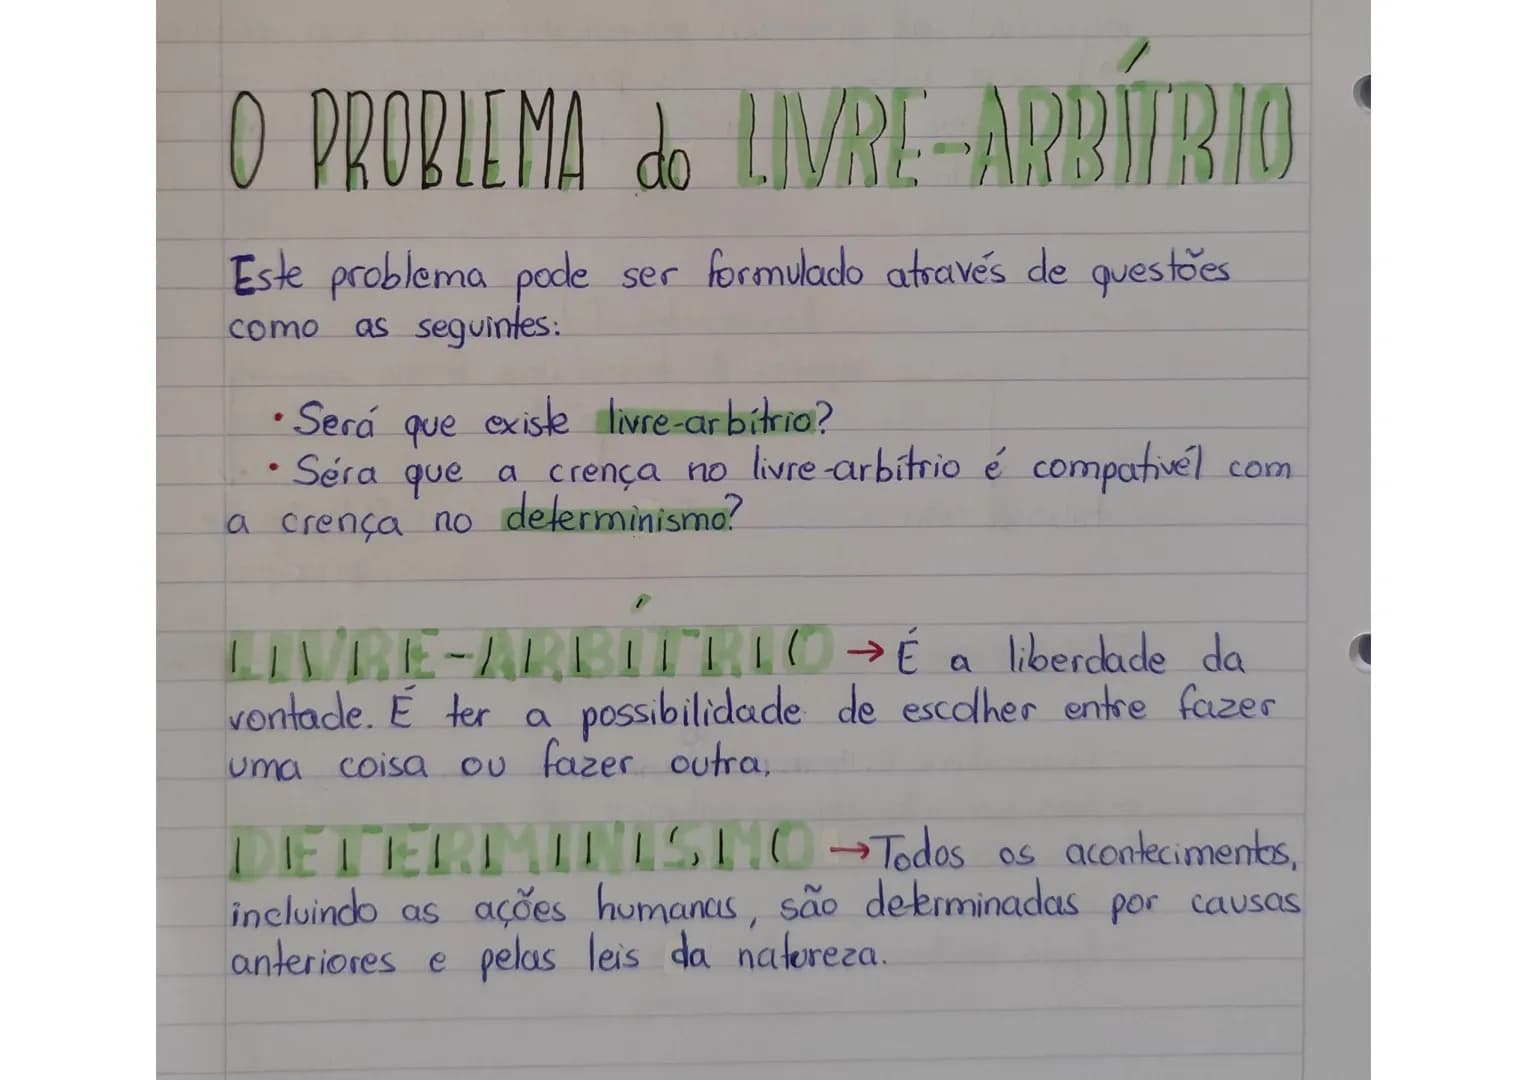 O PROBLEMA do LIVRE-ARBÍTRIO
Este problema pode ser formulado através de questões
como as seguintes:
• Será que existe livre-arbítrio?
• Séra que a crença no livre-arbítrio é compativél com
a crença no determinismo?
LIVRE-ARBÍTRIO → É a liberdade da
vontade. É ter a possibilidade de escolher entre fazer
uma coisa ou fazer outra.
DETERMINISMO → Todos os acontecimentos,
incluindo as ações humanas, são determinadas por causas
anteriores e pelas leis da natureza.